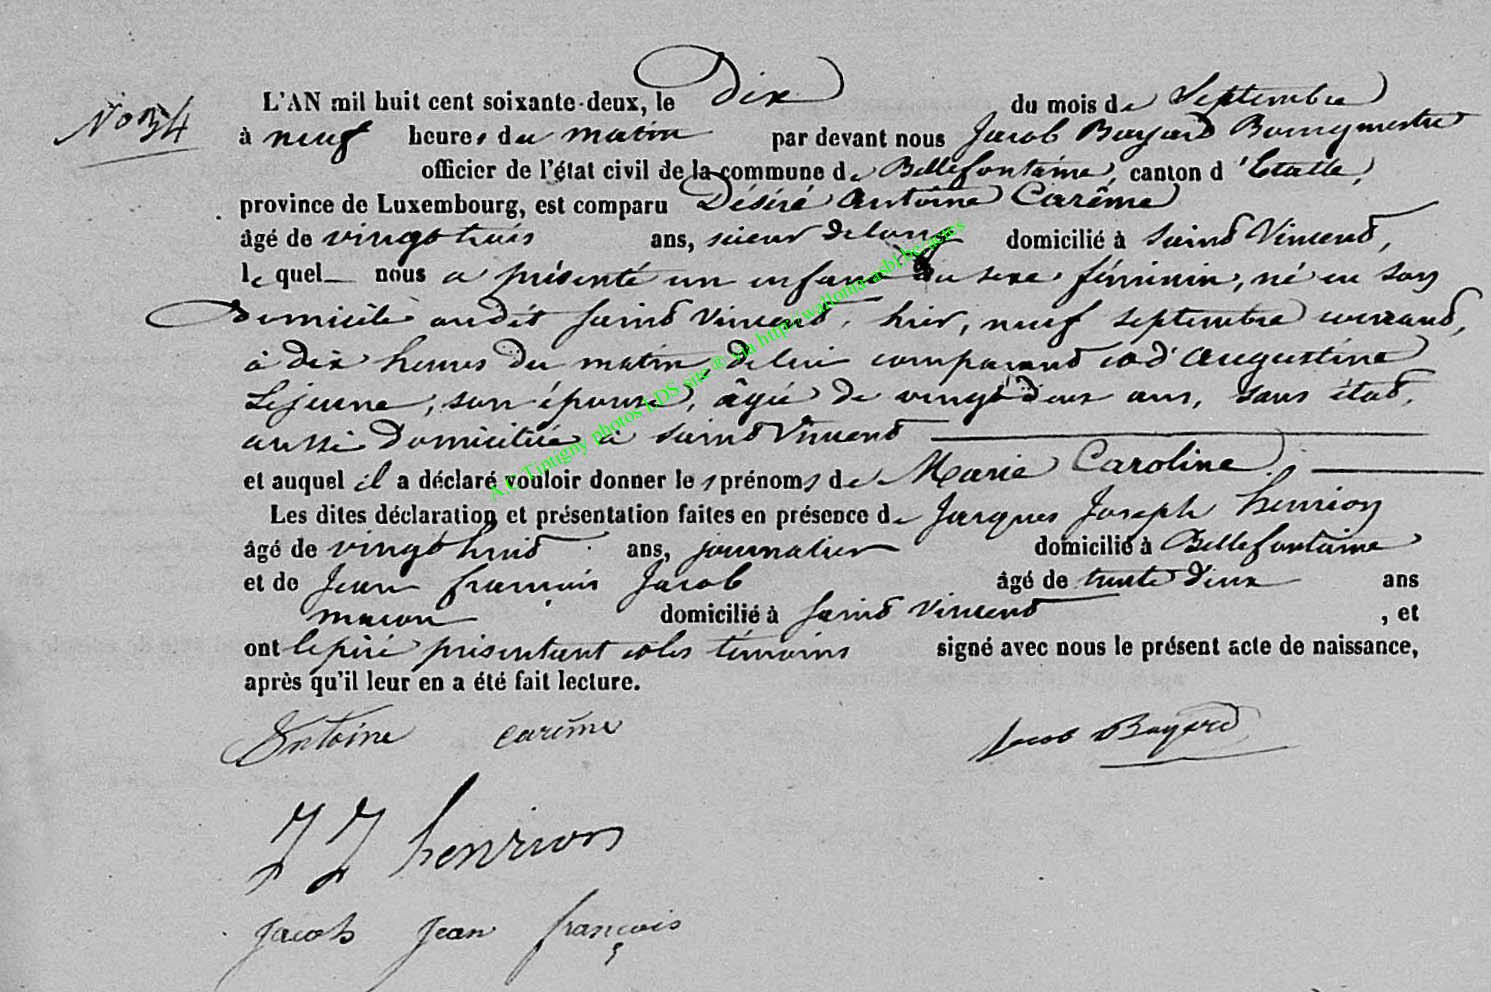 No 34
L'AN mil huit cent soixante-deux, le Dix du mois de Septembre
à neuf heures du matin par devant nous Jacob Bayard Bourgmestre
officier de l'état civil de la commune de Bellefontaine, canton d'Etalle,
province de Luxembourg, est comparu Désiré Antoine Carême
âgé de vingt trois ans, scieur de long domicilié à Saint Vincent,
lequel nous a présenté un enfant du sexe féminin, né en son
Domicile audit Saint Vincent, hier, neuf septembre courant,
à dix heures du matin, de lui comparant et d'Augustine
Lejeune, son épouse, âgée de vingt deux ans, sans état,
aussi Domiciliée à Saint Vincent
et auquel il a déclaré vouloir donner les prénoms de Marie Caroline.
Les dites déclaration et présentation faites en présence de Jacques Joseph henrion
âgé de vingt huit ans, journalier domicilié à Bellefontaine
et de Jean françois Jacob âgé de trente deux ans
macon domicilié à Saint Vincent, et
ont le père présentant et les témoins signé avec nous le présent acte de naissance,
après qu'il leur en a été fait lecture.
Antoine carême Jacob Bayard
J J henrion
jacob jean françois
A.C. Tintigny photos LDS site ® via http://wallonia-asbl.be/actes